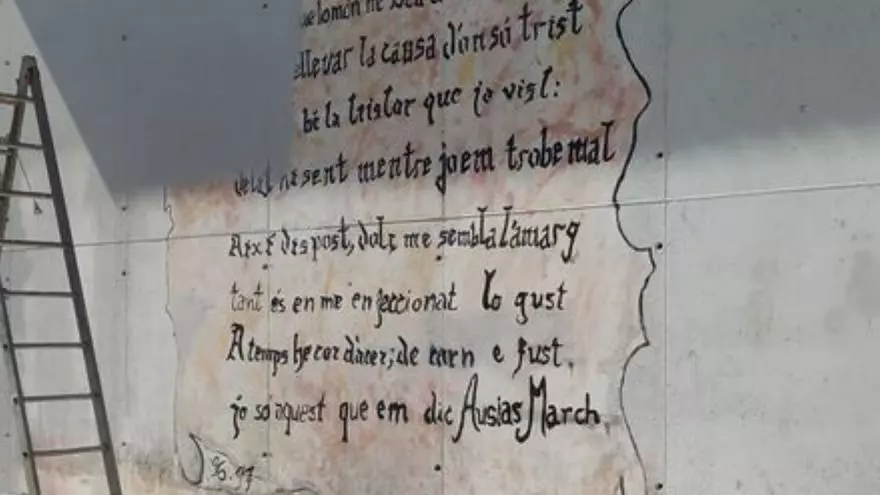 lo món ne
llevar la causa d'on só trist
bé la tristor que jo vist:
present mentre jo em trobe mal
Així dispost, dolç me sembla l'amarg
tant és en me enfeccionat lo gust
A temps he cor d'acer; de carn e fust,
jo só aquest que em dic Ausias March